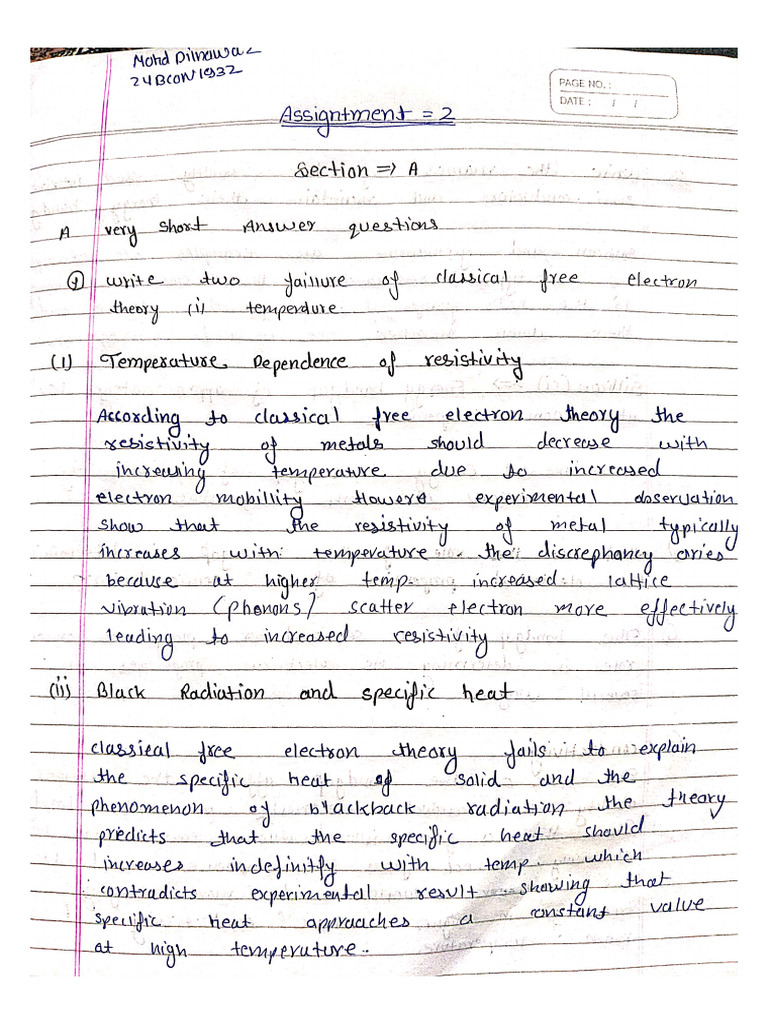 Mohd Dilnawaz
24BCON1932
PAGE NO. :
DATE : / /
Assigntment = 2
Section => A
A very short Answer questions
Q write two failure of classical free electron
theory (i) temperdure
(i) Temperature Dependence of resistivity
According to classical free electron theory the
resistivity of metals should decrease with
increasing temperature due to increased
electron mobillity Howers experimental doservation
show that the resistivity of metal typically
increases with temperature. the discrephancy aries
because at higher temp. increased lattice
vibration (phonons) scatter electron more effectively
leading to increased resistivity
(ii) Black Radiation and specific heat
classical free electron theory fails to explain
the specific heat of solid and the
phenomenon of blackback radiation the theory
predicts that the specific heat should
increases indefinitfy with temp. which
contradicts experimental result showing that
specific heat approaches a constant value
at high temperature..